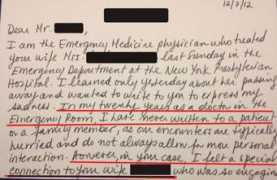 12/3/12
Dear Mr.
I am the Emergency Medicine physician who treated
your wife Mrs. last Sunday in the
Emergency Department at the New York Presbyterian
Hospital. I learned only yesterday about her passing
away and wanted to write to you to express my
sadness. In my twenty years as a doctor in the
Emergency Room, I have never written to a patient
or a family member, as our encounters are typically
hurried and do not always allow for more personal
interaction. However, in your case, I felt a special
connection to your wife who was so engaging